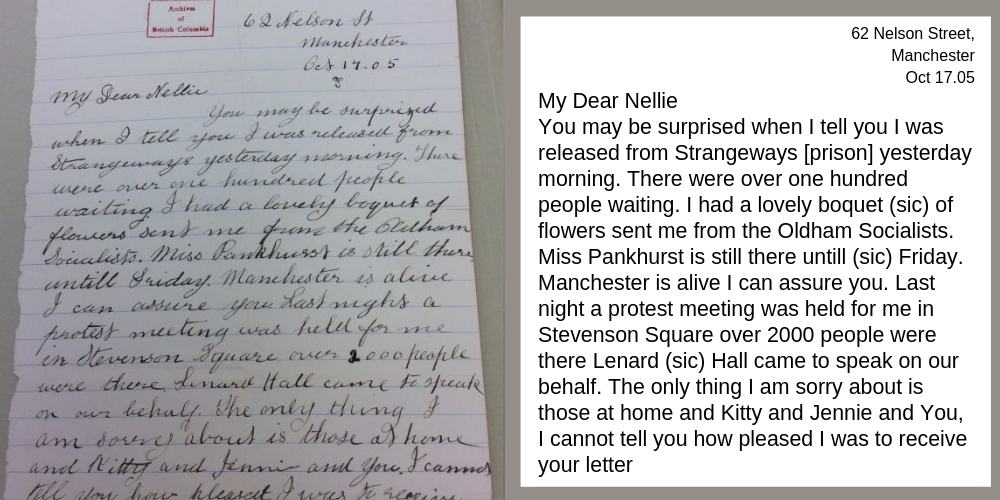 Archives
of
British Columbia
62 Nelson St
Manchester
Oct 17.05
My Dear Nellie
You may be surprized
when I tell you I was released from
Strangeways yesterday morning. There
were over one hundred people
waiting I had a lovely boquet of
flowers sent me from the Oldham
Socialists. Miss Pankhurst is still there
untill Friday. Manchester is alive
I can assure you. Last night a
protest meeting was held for me
in Stevenson Square over 2000 people
were there. Lenard Hall came to speak
on our behalf. The only thing I
am sorry about is those at home
and Kitty and Jennie and You. I cannot
tell you how pleased I was to receive
62 Nelson Street,
Manchester
Oct 17.05
My Dear Nellie
You may be surprised when I tell you I was
released from Strangeways [prison] yesterday
morning. There were over one hundred
people waiting. I had a lovely boquet (sic) of
flowers sent me from the Oldham Socialists.
Miss Pankhurst is still there untill (sic) Friday.
Manchester is alive I can assure you. Last
night a protest meeting was held for me in
Stevenson Square over 2000 people were
there Lenard (sic) Hall came to speak on our
behalf. The only thing I am sorry about is
those at home and Kitty and Jennie and You,
I cannot tell you how pleased I was to receive
your letter